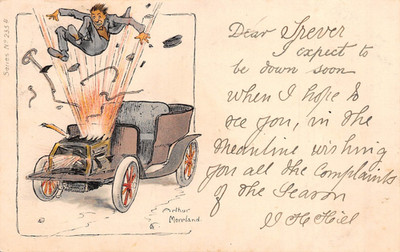 Series No 235 F
Dear Trever
I expect to
be down soon
when I hope to
see you, in the
meantime wishing
you all the Complaints
of the Season
Arthur
Moreland.